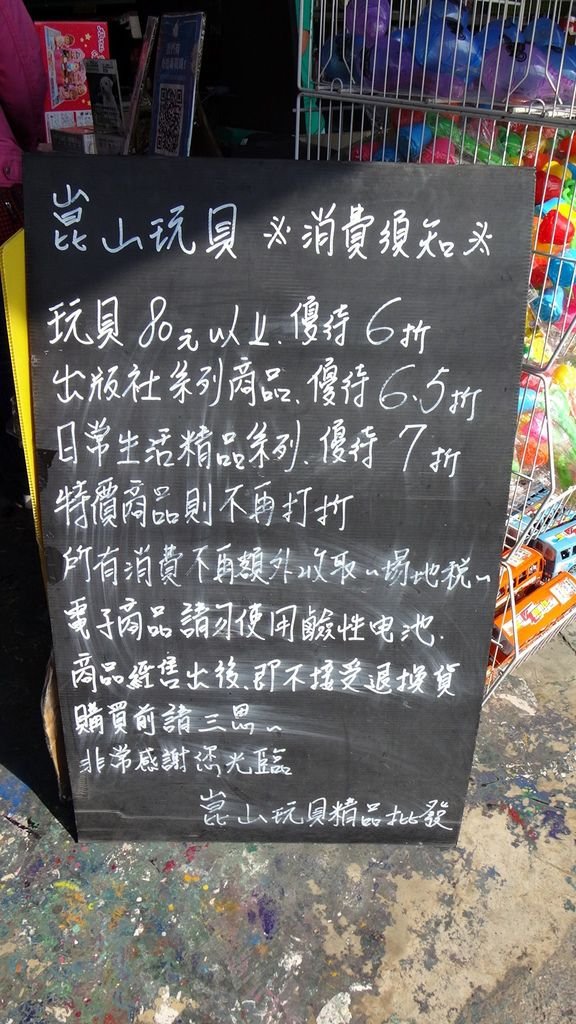 崑山玩具 ※消費須知※
玩具80元以上.優待6折
出版社系列商品、優待6.5折
日常生活精品系列.優待7折
特價商品則不再打折
所有消費不再額外收取"場地稅"
電子商品請勿使用鹼性电池.
商品經售出後、即不接受退換貨
購買前請三思~
非常感謝您光臨
崑山玩具精品批發